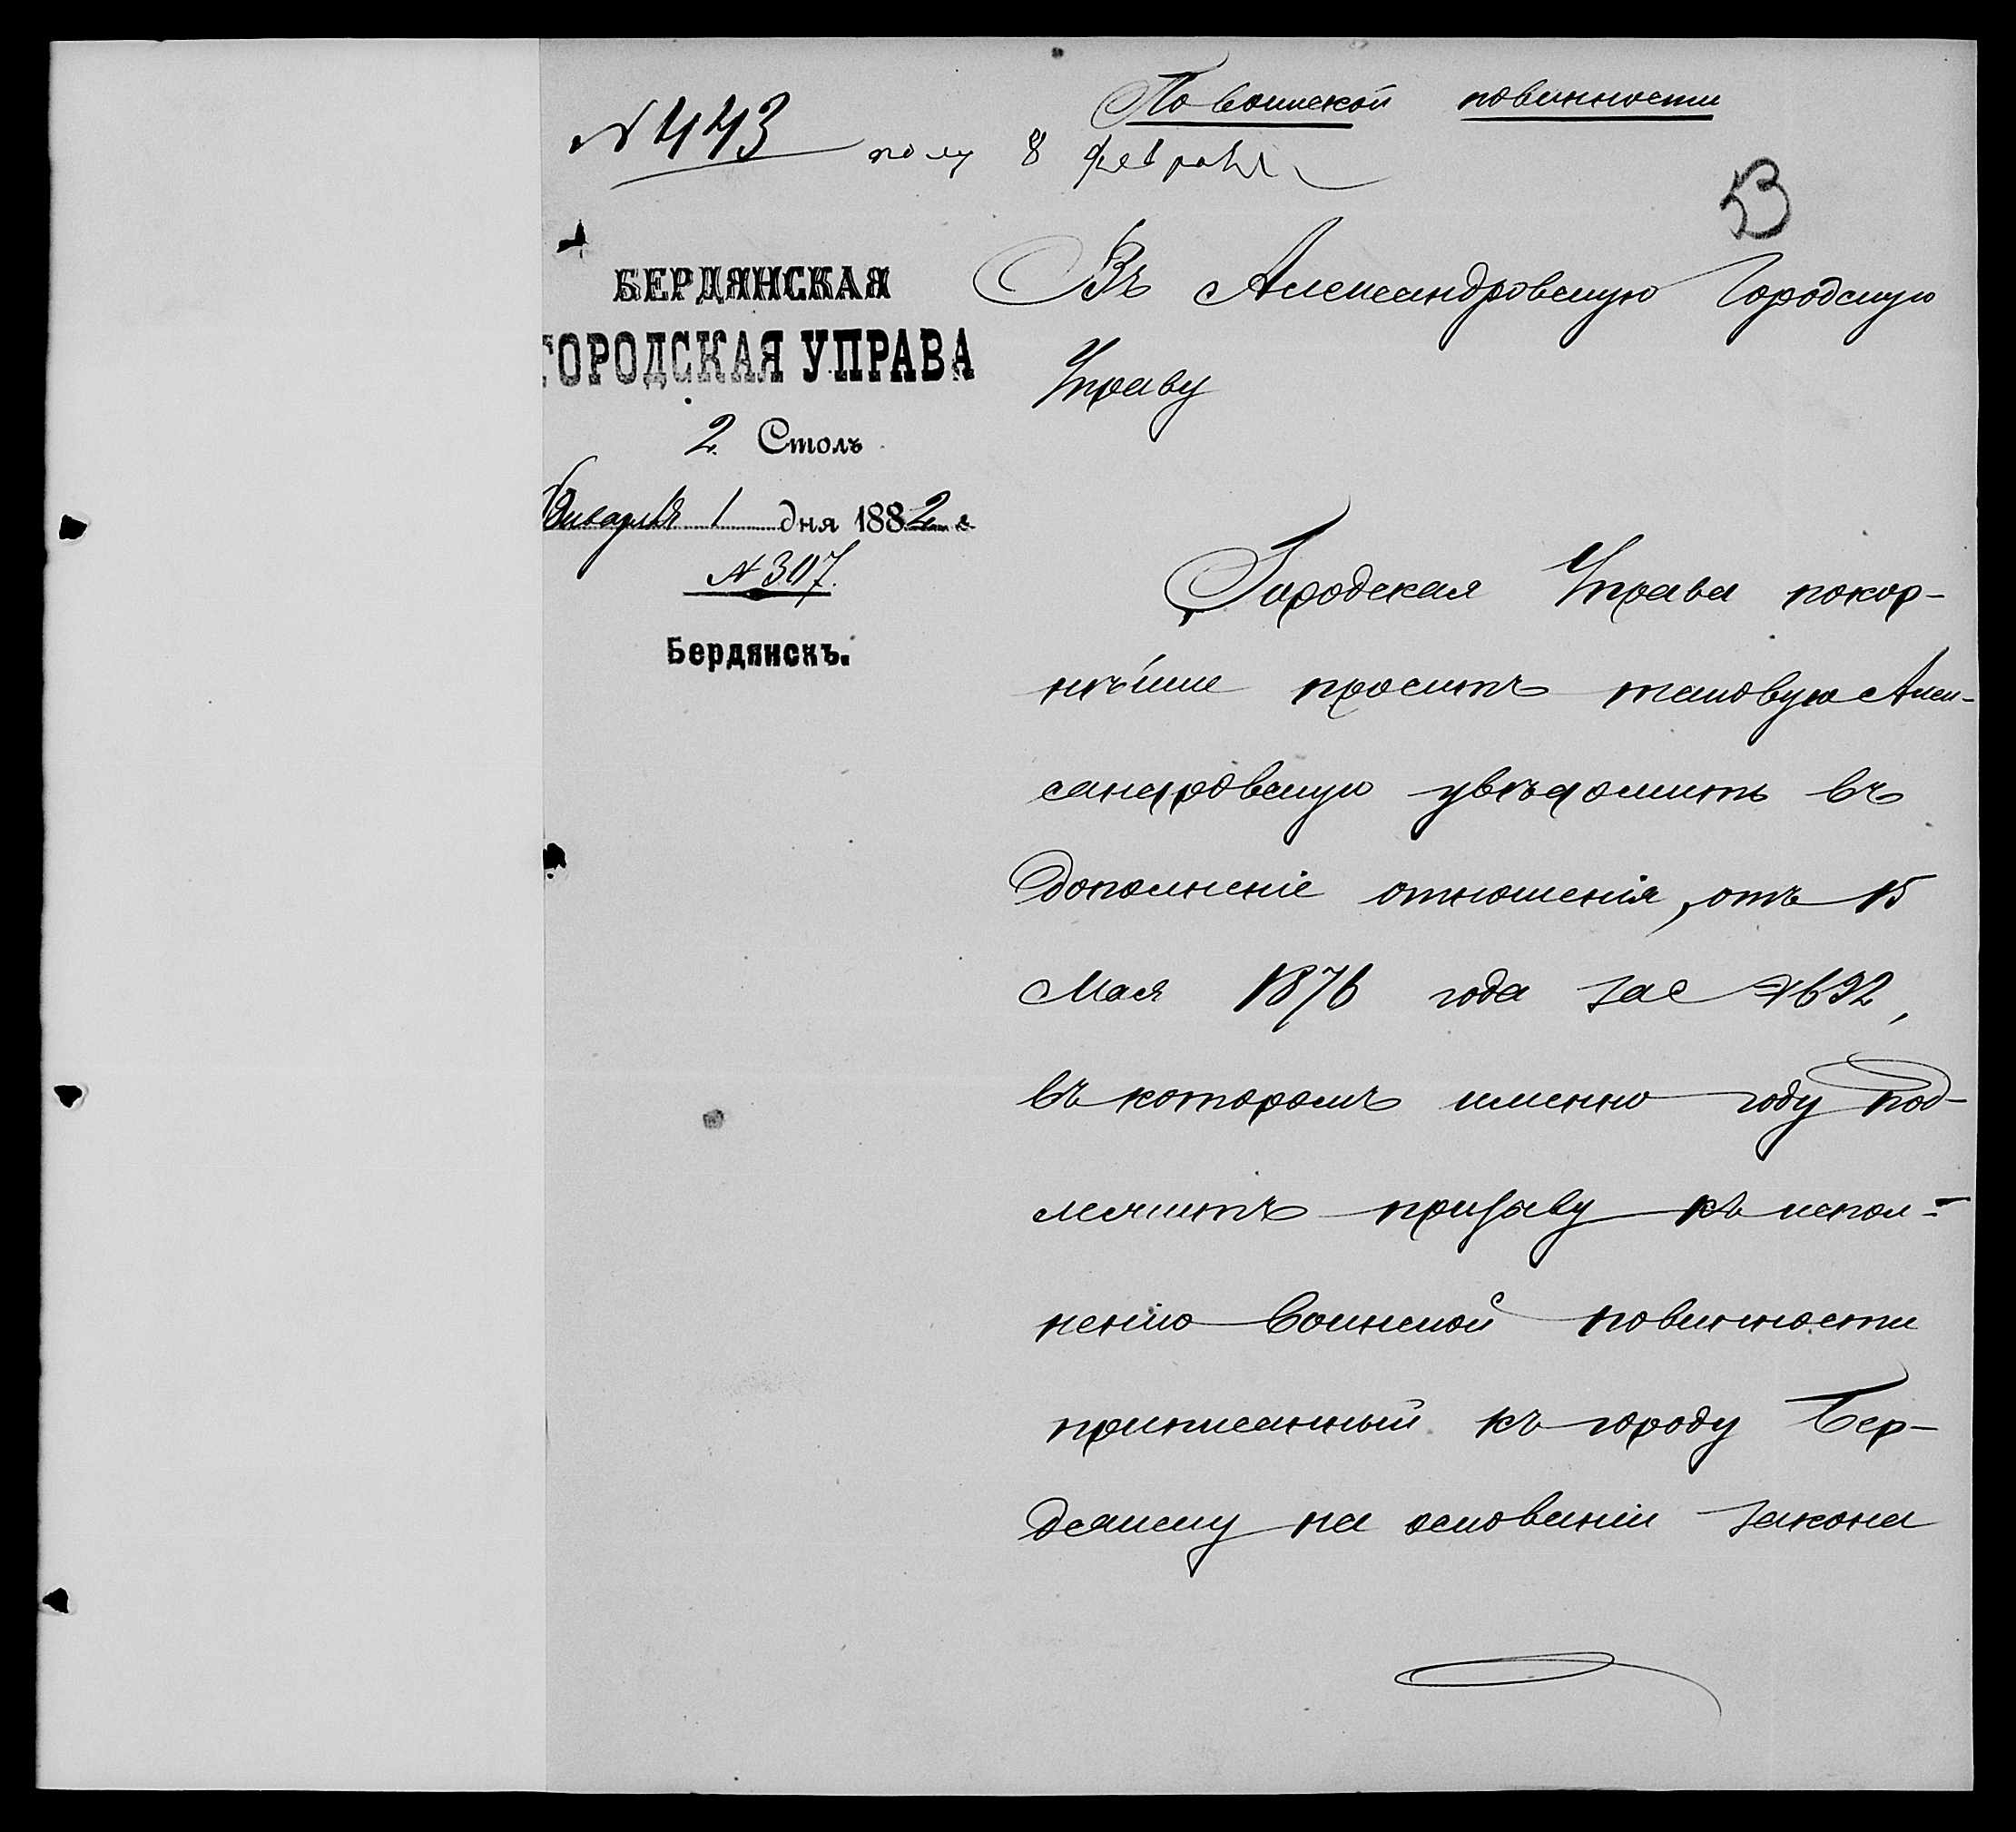 По воинской повинности
№ 443 полу 8 февраля
53
БЕРДЯНСКАЯ
ГОРОДСКАЯ УПРАВА
2 Столъ
Января 1 дня 1882 г.
№ 307.
Бердянскъ.
Въ Александровскую Городскую
Управу
Городская Управа покор-
нѣйше проситъ таковую Алек-
сандровскую увѣдомить въ
дополненіе отношенія, отъ 15
Мая 1876 года за № 692,
въ которомъ именно году под-
лежитъ призыву къ испол-
ненію воинской повинности
приписанный къ городу Бер-
дянску на основаніи закона